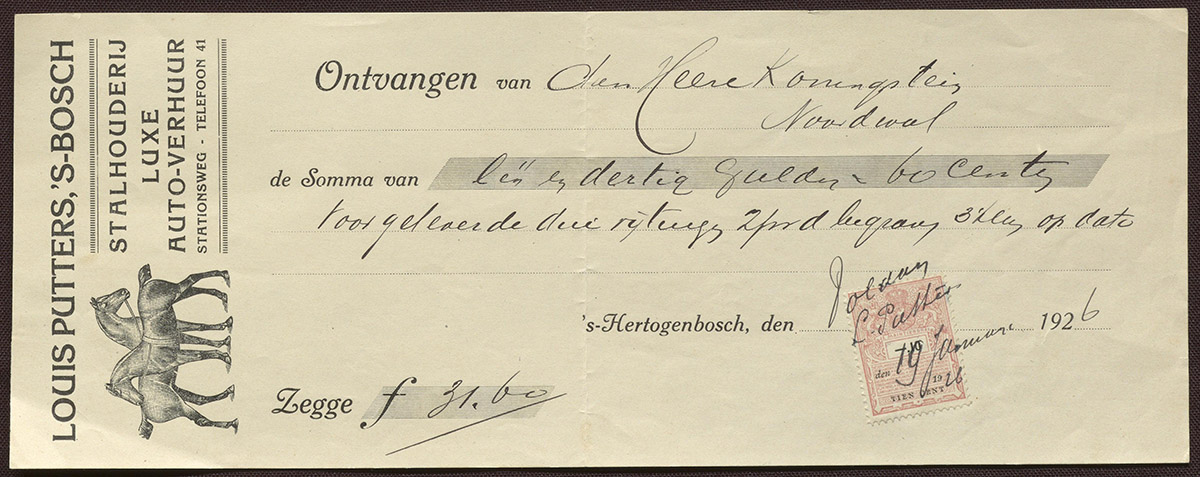 LOUIS PUTTERS, 'S-BOSCH
STALHOUDERIJ
LUXE
AUTO-VERHUUR
STATIONSWEG - TELEFOON 41
Ontvangen van den Heere Koningstein
Noordwal
de Somma van een en dertig Gulden 60 Centen
voor geleverde drie rijtuigen op dato
Voldaan
L. Putters
's-Hertogenbosch, den 1926
den 19 Januari 1926
TIEN CENT
Zegge f 31.60